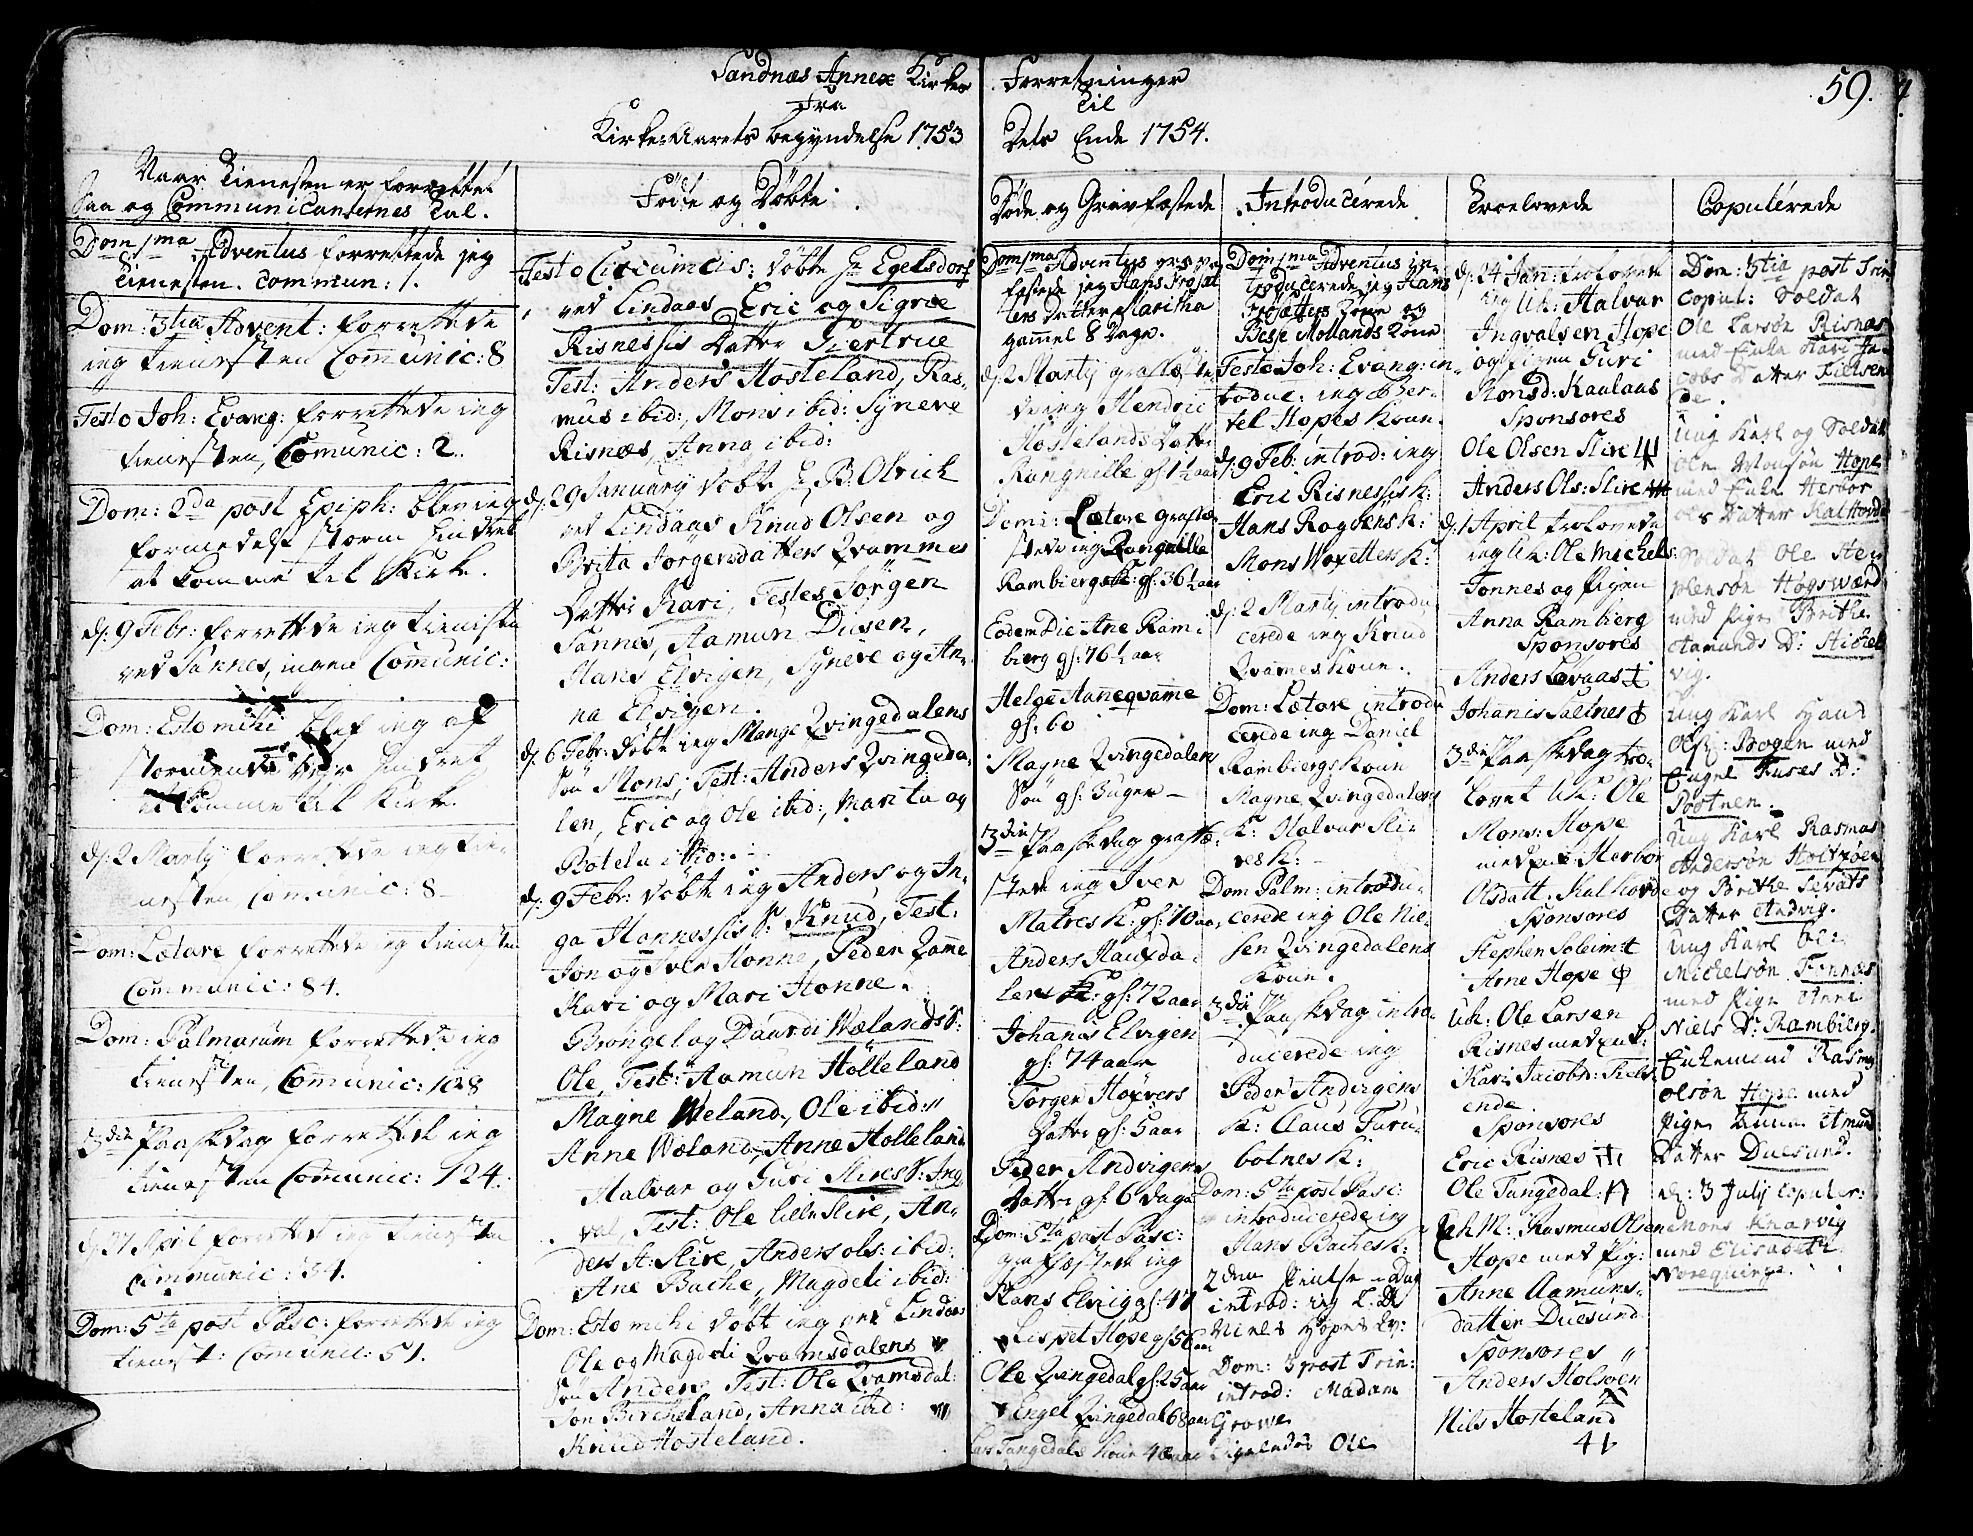 Sandnæs Annex Kirkes Forretninger
fra til
Kirke-Aarets begyndelse 1753 Dets Ende 1754.
59.
Naar Tienesten er forrettet
Saa og Communicanternes Tal.
Dom 1ma Adventus forrettede jeg
Tienesten. Commun: 1.
Dom: 3tia Advent: forrettede
ieg tienesten Comunic: 8
Festo Joh: Evang: forrettede ieg
tienesten, Comunic: 2.
Dom: 2da post Epiph: blev ieg
formedelst storm hindret
at komme til Kirke.
d: 9 Febr: forrettede ieg tienesten
ved Sannes, ingen Comunic:
Dom: Esto mihi blef ieg af
stormende hindret
at komme til Kirke.
d: 2 Martij forrettede ieg tie-
nesten Comunic: 8
Dom: Lætare forrettede ieg tienesten
Communic: 84.
Dom: Palmarum forrettede ieg
tienesten, Comunic: 108
3die Paaskedag forrettede ieg
tienesten Comunic: 124.
d: 27 April forrettede ieg tienesten
Communic: 34.
Dom: 5te post Pasc: forrettede ieg
tienest: Comunic: 51.
Føde og Døbte
Festo Circumcis: døbte Hr Egelsdorf
ved Lindaas Eric og Sigrie
Risnessis Datter Giertrue
Test: Anders Hosteland, Ras-
mus ibid:, Mons ibid: Syneve
Risnæs, Anna ibid:
d: 29 January døbte H: B: Olrich
ved Lindaas Knud Olsen og
Brita Jorgensdatters Qvammes
Datter Kari, Testes Jørgen
Sannes, Aamun Dusen,
Hans Elvigen, Syneve og An-
na Elvigen.
d: 6 Febr: døbte ieg Mange Qvingedalens
Søn Mons, Test: Anders Qvingeda-
len, Eric og Ole ibid:, Marita og
Botela ibid:
d: 9 Febr: døbte ieg Anders og In-
ga Hannessis S: Knud, Test:
Jon og Iver Honne, Peder Qame
Kari og Mari Honne.
Brongel og Daardi Wælands S:
Ole, Test: Aamun Hølleland
Magne Weland, Ole ibid:
Anne Wæland, Anne Hølleland
Halvar og Guri Slires S: Ing
val, Test: Ole lille Slire, An-
ders A: Slire, Anders ols: ibid:
Ane Bache, Magdeli ibid:
Dom: Esto mihi døbt ieg ved Lindaas
Ole og Magdeli Qvamsdalens
Søn Anders Test: Ole Qvamsdal:
Jon Bircheland, Anna ibid:
Knud Hosteland.
Døde og Gravfæstede
Dom 1ma Adventus
fæstede jeg Hans Frøsæt
ters Datter Maritha
gammel 8 Dage.
d: 2 Martij grafæste
de ieg Hendric
Hostelands Datter
Rangnille gs: 1½ aar
Domi: Lætare grafæ-
stede ieg Rangnille
Rambiergs K: gs: 36½ aar
Eodem Die Ane Ram-
bierg gs: 76½ aar
Helge Aanneqvamme
gs: 60
Magne Qvingedalens
Søn gs: 3 uger
3die Paaskedag grafæ-
stede ieg Iver
Matres K: gs: 70 aar
Anders Hauxda-
lens K: gs: 72 aar
Johanes Elvigen
gs: 74 aar
Jorgen Hopvers
Datter gs: 5 aar
Peder Andvigens
Datter gs: 6 Daga
Dom: 5ta post Pasc:
grafæstede ieg
Hans Elvig gs: 47
Lispet Hope gs: 56 aar
Ole Qvingedal gs: 25 aar
Engel Qvingedal 68 aar
Lars Tangedals koun 40 aar
Introducerede
Dom 1ma Adventus in-
troducerede jeg Hans
Frøsætters Kone og
Besse Mollands Kone
Festo Joh: Evang: in-
troduc: ieg Ber-
tel Hopes koun.
d: 9 Feb: introd: ieg
Eric Risnessis K:
Hans Rogbens K:
Mons Woxetters K:
d: 2 Martij introdu
cerede ieg Knud
Qvames koun.
Dom: Lætare introdu
cerede ieg Daniel
Rambiergs koun
Magne Qvingedalens
K: Halvar Sli-
res K:
Dom: Palm: introdu-
cerede ieg Ole Niel-
sen Qvingedalens
koun.
3die Paaskdag intro-
ducerede ieg
Peder Andvigens
K: Claus Furu-
botnes K:
Dom: 5te post Pasc:
introducerede ieg
Hans Baches K:
2den Pintse-Dag
introd: ieg
Niels Hopes
Dom: 3 post Trin:
introd: Madam
Growe
Ole
Troelovede
d: 24 Jan: trolovede
ieg Uk: Halvar
Ingvalsen Hope
og pigen Guri
Monsd: Kaulaas
Sponsores
Ole Olsen Slire
Anders Ols: Slire
d: 1 April trolovede
ieg Uk: Ole Michels:
Fonnes og Pigen
Anna Ramberg
Sponsores
Anders Levaas
Johanis Saltnes
3die Paaskdag tro-
lovet Uk: Ole
Mons: Hope
med enk: Herbor
Olsdatt. Kalhovde
Sponsores
Stephen Soleim
Arne Hope
Uk: Ole Larsen
Risnes med enk:
Kari Jacobsd: Fiels-
ende
Sponsores
Eric Risnes
Ole Tangedal:
Enk M: Rasmus Olsen
Hope med Pig:
Anne Aamuns-
datter Duesund
Sponsores
Anders Holsøen
Nils Hosteland
Copulerede
Dom: 3tia post Trin
Copul: Soldat
Ole Larsøn Risnæs
med Enke Kari Ja-
cobs Datter Fielsen
de.
Ung Karl og Soldat
Ole Monsøn Hope
med Enke Herbor
ols Datter Kalhovde
Soldat Ole Ste-
phensøn Høgswærd
med Pigen Brithe
Aamunds D:
vig.
Ung Karl Hans
Ols: Bogen med
Engel Knses D:
Ung Karl Rasmus
Andersøn Holsøen
og Brithe Sevats
Datter Andvig.
Ung Karl Ole
Michelsøn Fonnæs
med Pige Anne
Niels D: Ramberg.
Enkemand Rasmus
olsøn Hope med
Pigen Anne Amund
Datter Duesund.
d: 3 July copuler:
Mons Knarvig
med Elisabeth